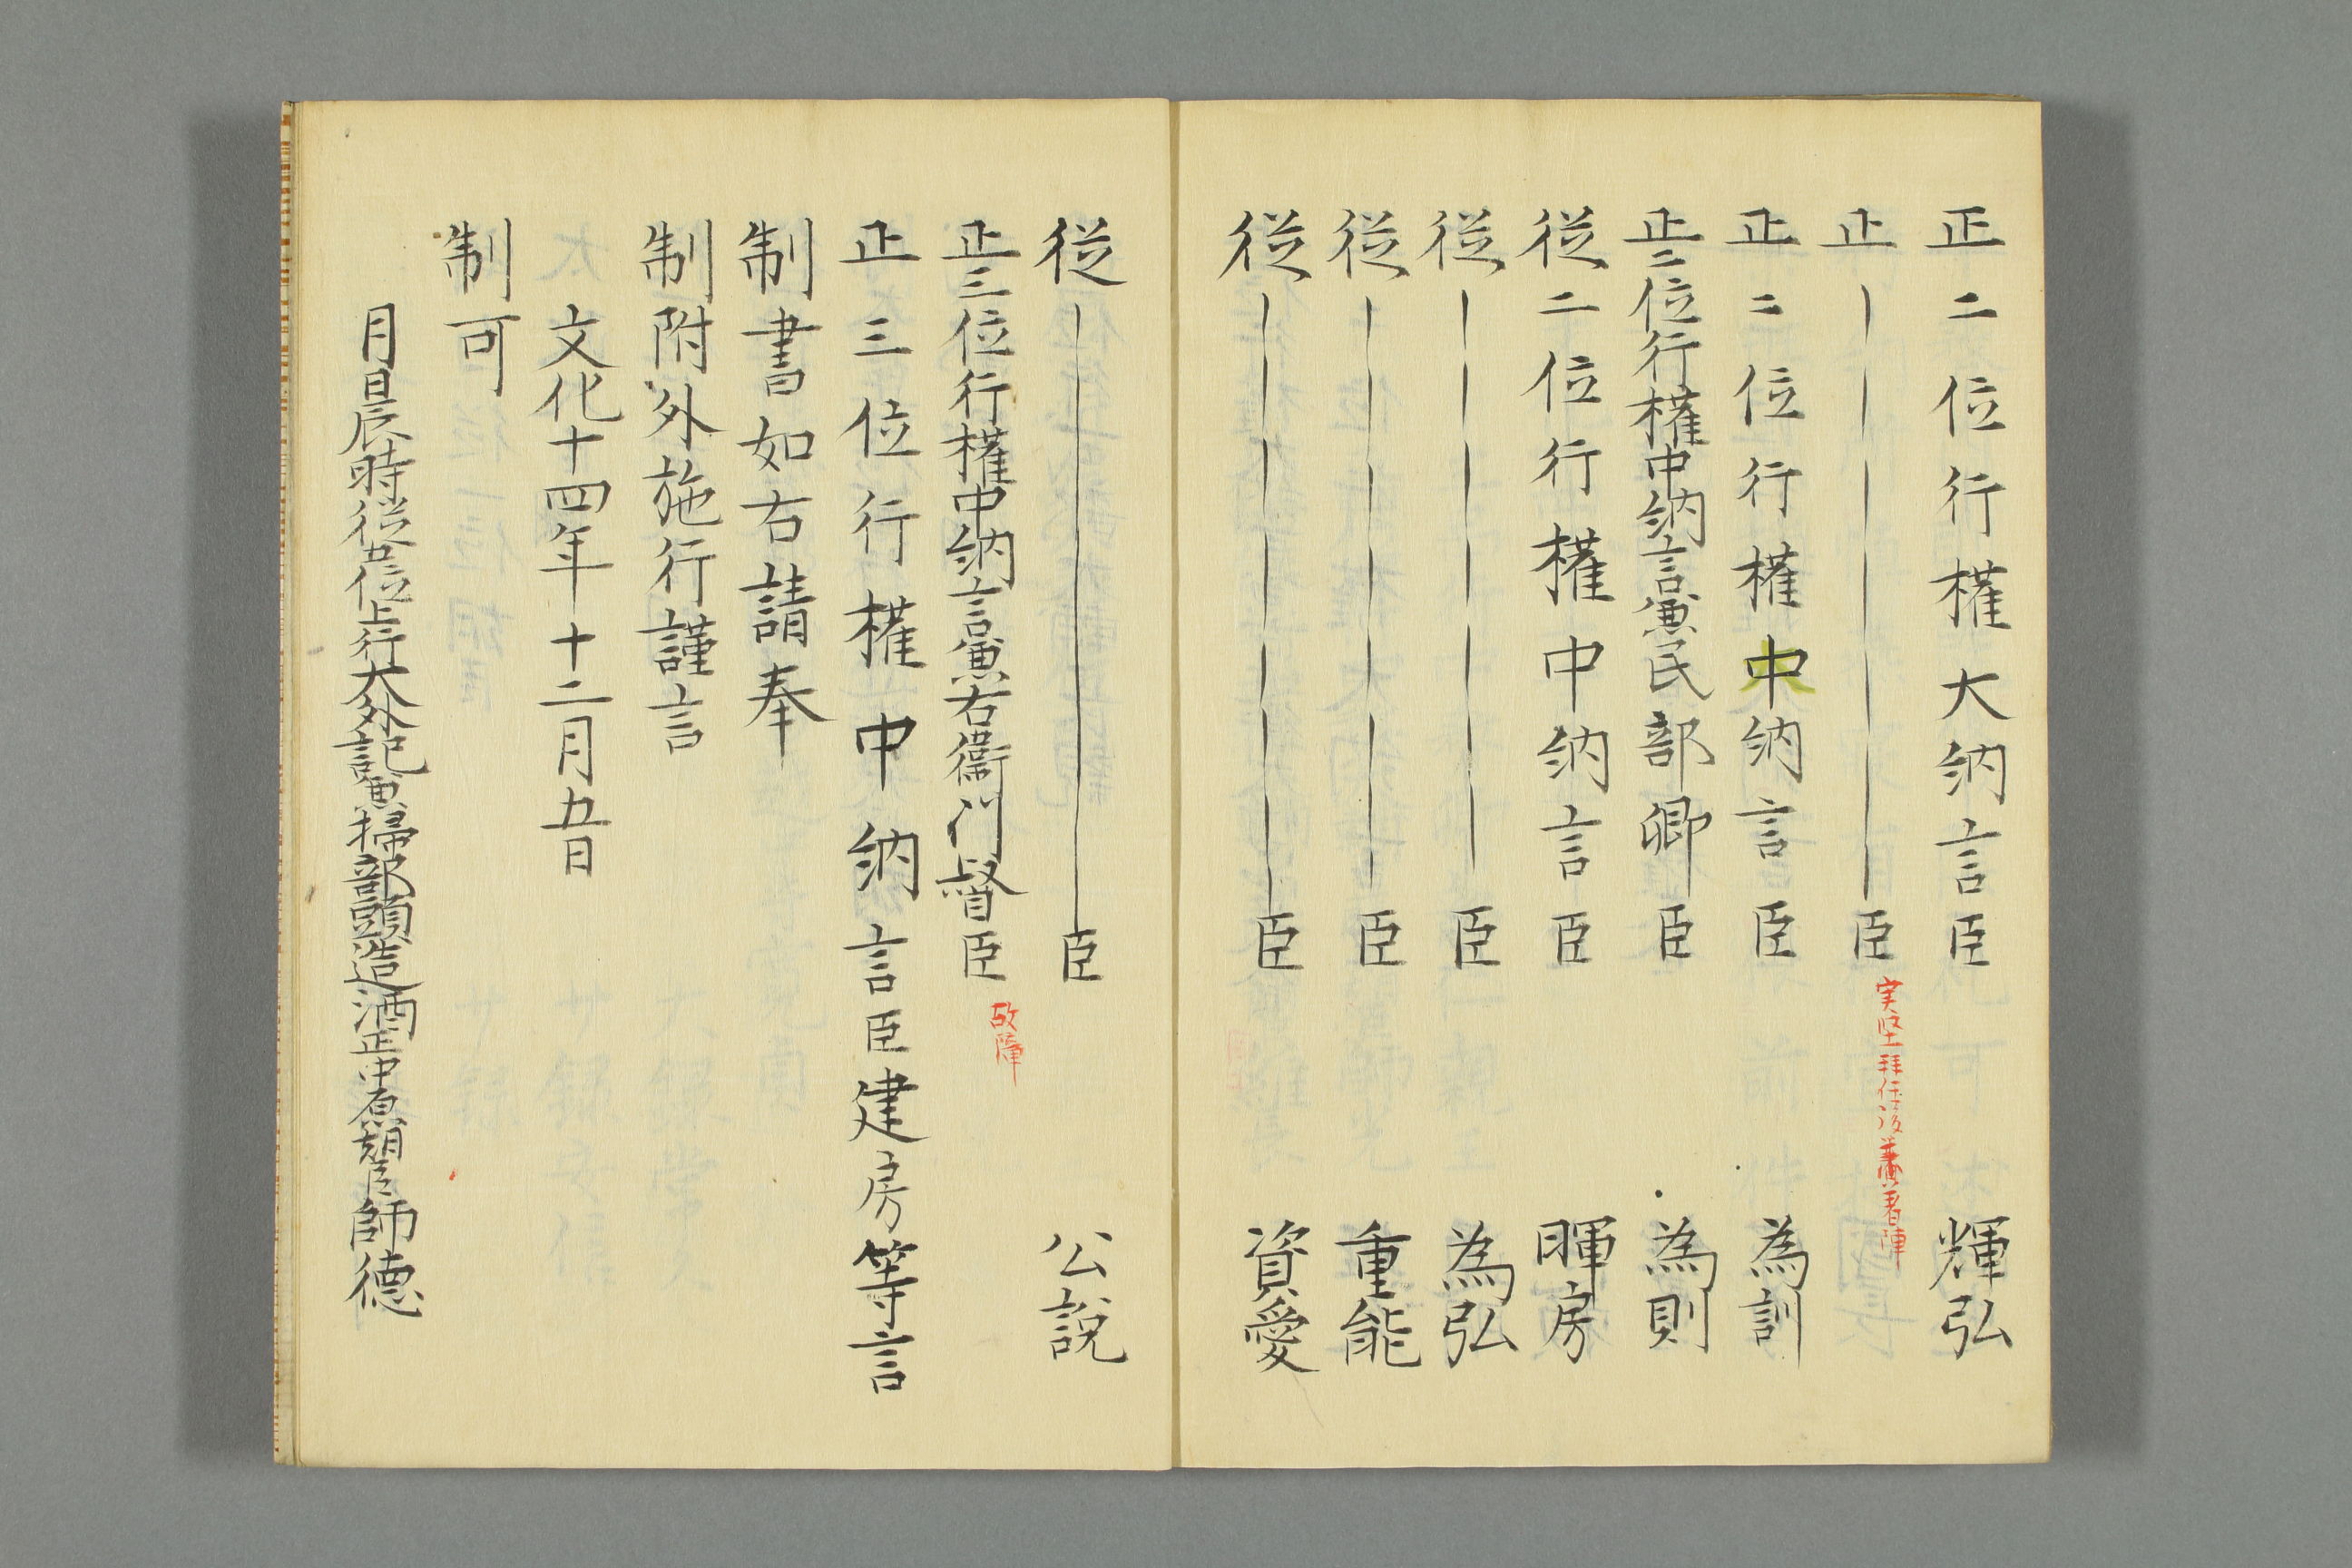 正二位行権大納言臣 輝弘
正――――――臣
実堅拝任後兼着陣
正二位行権中納言臣 為訓
正二位行権中納言兼民部卿臣 為則
従二位行権中納言臣 暉房
従――――――臣 為弘
従――――――臣 重能
従――――――臣 資愛
従――――――臣 公説
正三位行権中納言兼右衞門督臣
故障
正三位行権中納言臣建房等言
制書如右請奉
制附外施行謹言
文化十四年十二月五日
制可
月日辰時従五位上行大外記兼掃部頭造酒正中原朝臣師徳